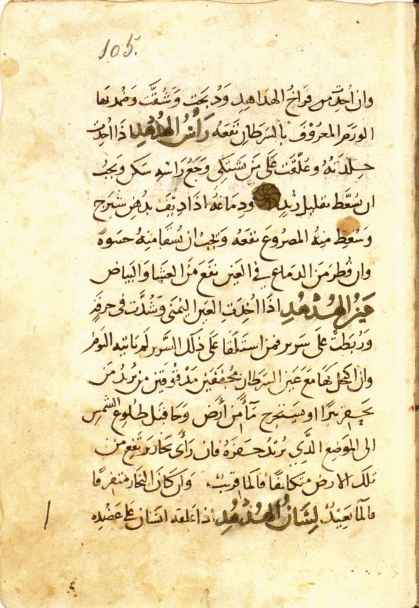 105.
وان اخذ من فراخ الهداهد وذبحت وشقت وضمد بها
الورم المعروف بالسرطان نفعه رأس الهدهد اذا اخذت
جلدته وعلقت على من يشتكي وجع راسه سكن ويجب
ان يسعط بقليل ودماغه اذا اديف بدهن شيرج
وسعط منه المصروع نفعه ويجب ان يسقا منه حسوه
وان قطر من الدماغ في العين نفع من العشا والبياض
عين الهدهد اذا اخذت العين اليمنى وشدت في خرقه
وربطت على سرير فمن استلقا على ذلك السرير لم ياتيه النوم
وان اكتحل بها مع عين السرطان مجففتين مدقوقتين من يريد من
يحفر بيرا او يستخرج ماً من ارض وجا قبل طلوع الشمس
الى الموضع الذي يريد حفره فان رأى بخار يرتفع من
تلك الارض متكاثفا فالما قريب وان كان البخار متفرقا
فالما بعيد لسان الهدهد اذا علقه انسان على عضده